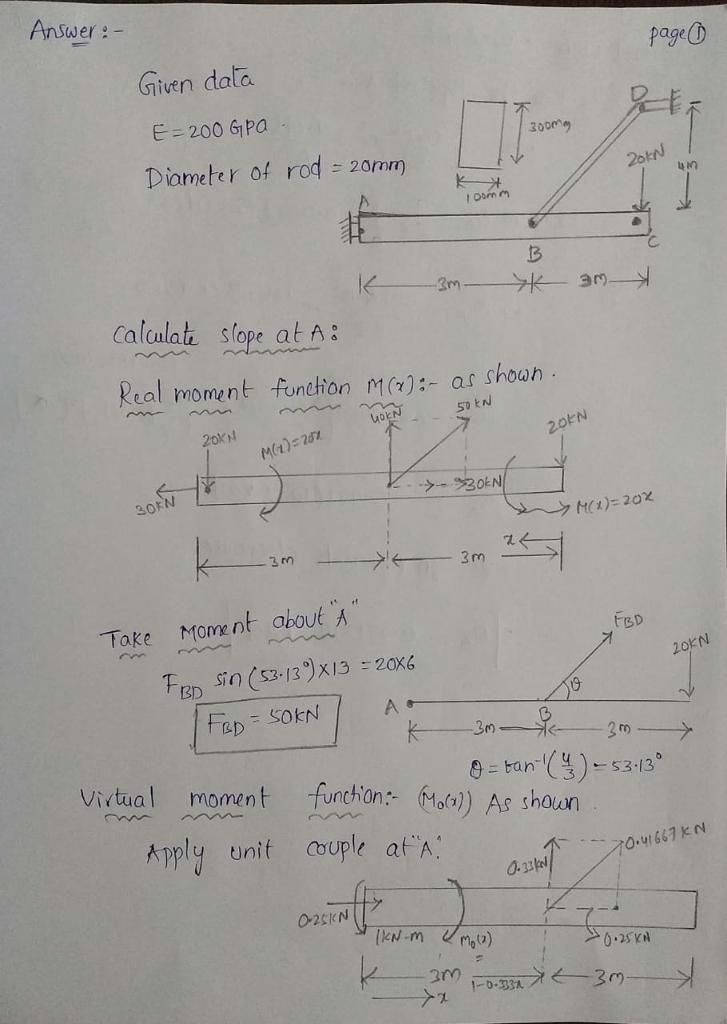 Answer :-
page ①
Given data
E = 200 GPa
Diameter of rod = 20mm
300mm
100mm
D
E
20kN
4m
A
B
C
3m
3m
Calculate slope at A :
Real moment function M(x) :- as shown .
20KN
M(x)=20x
40KN
50 kN
20KN
30KN
30KN
M(x)=20x
x
3m
3m
Take Moment about "A"
FBD sin (53.13°) x13 = 20x6
FBD = 50KN
FBD
20KN
θ
A
B
3m
3m
θ = tan⁻¹(4/3) = 53.13°
Virtual moment function:- (M₀(x)) As shown .
Apply unit couple at "A".
0.33kN
0.41667 KN
0.25KN
1KN-m
M₀(x)
=
1-0.333x
0.25 KN
3m
3m
x